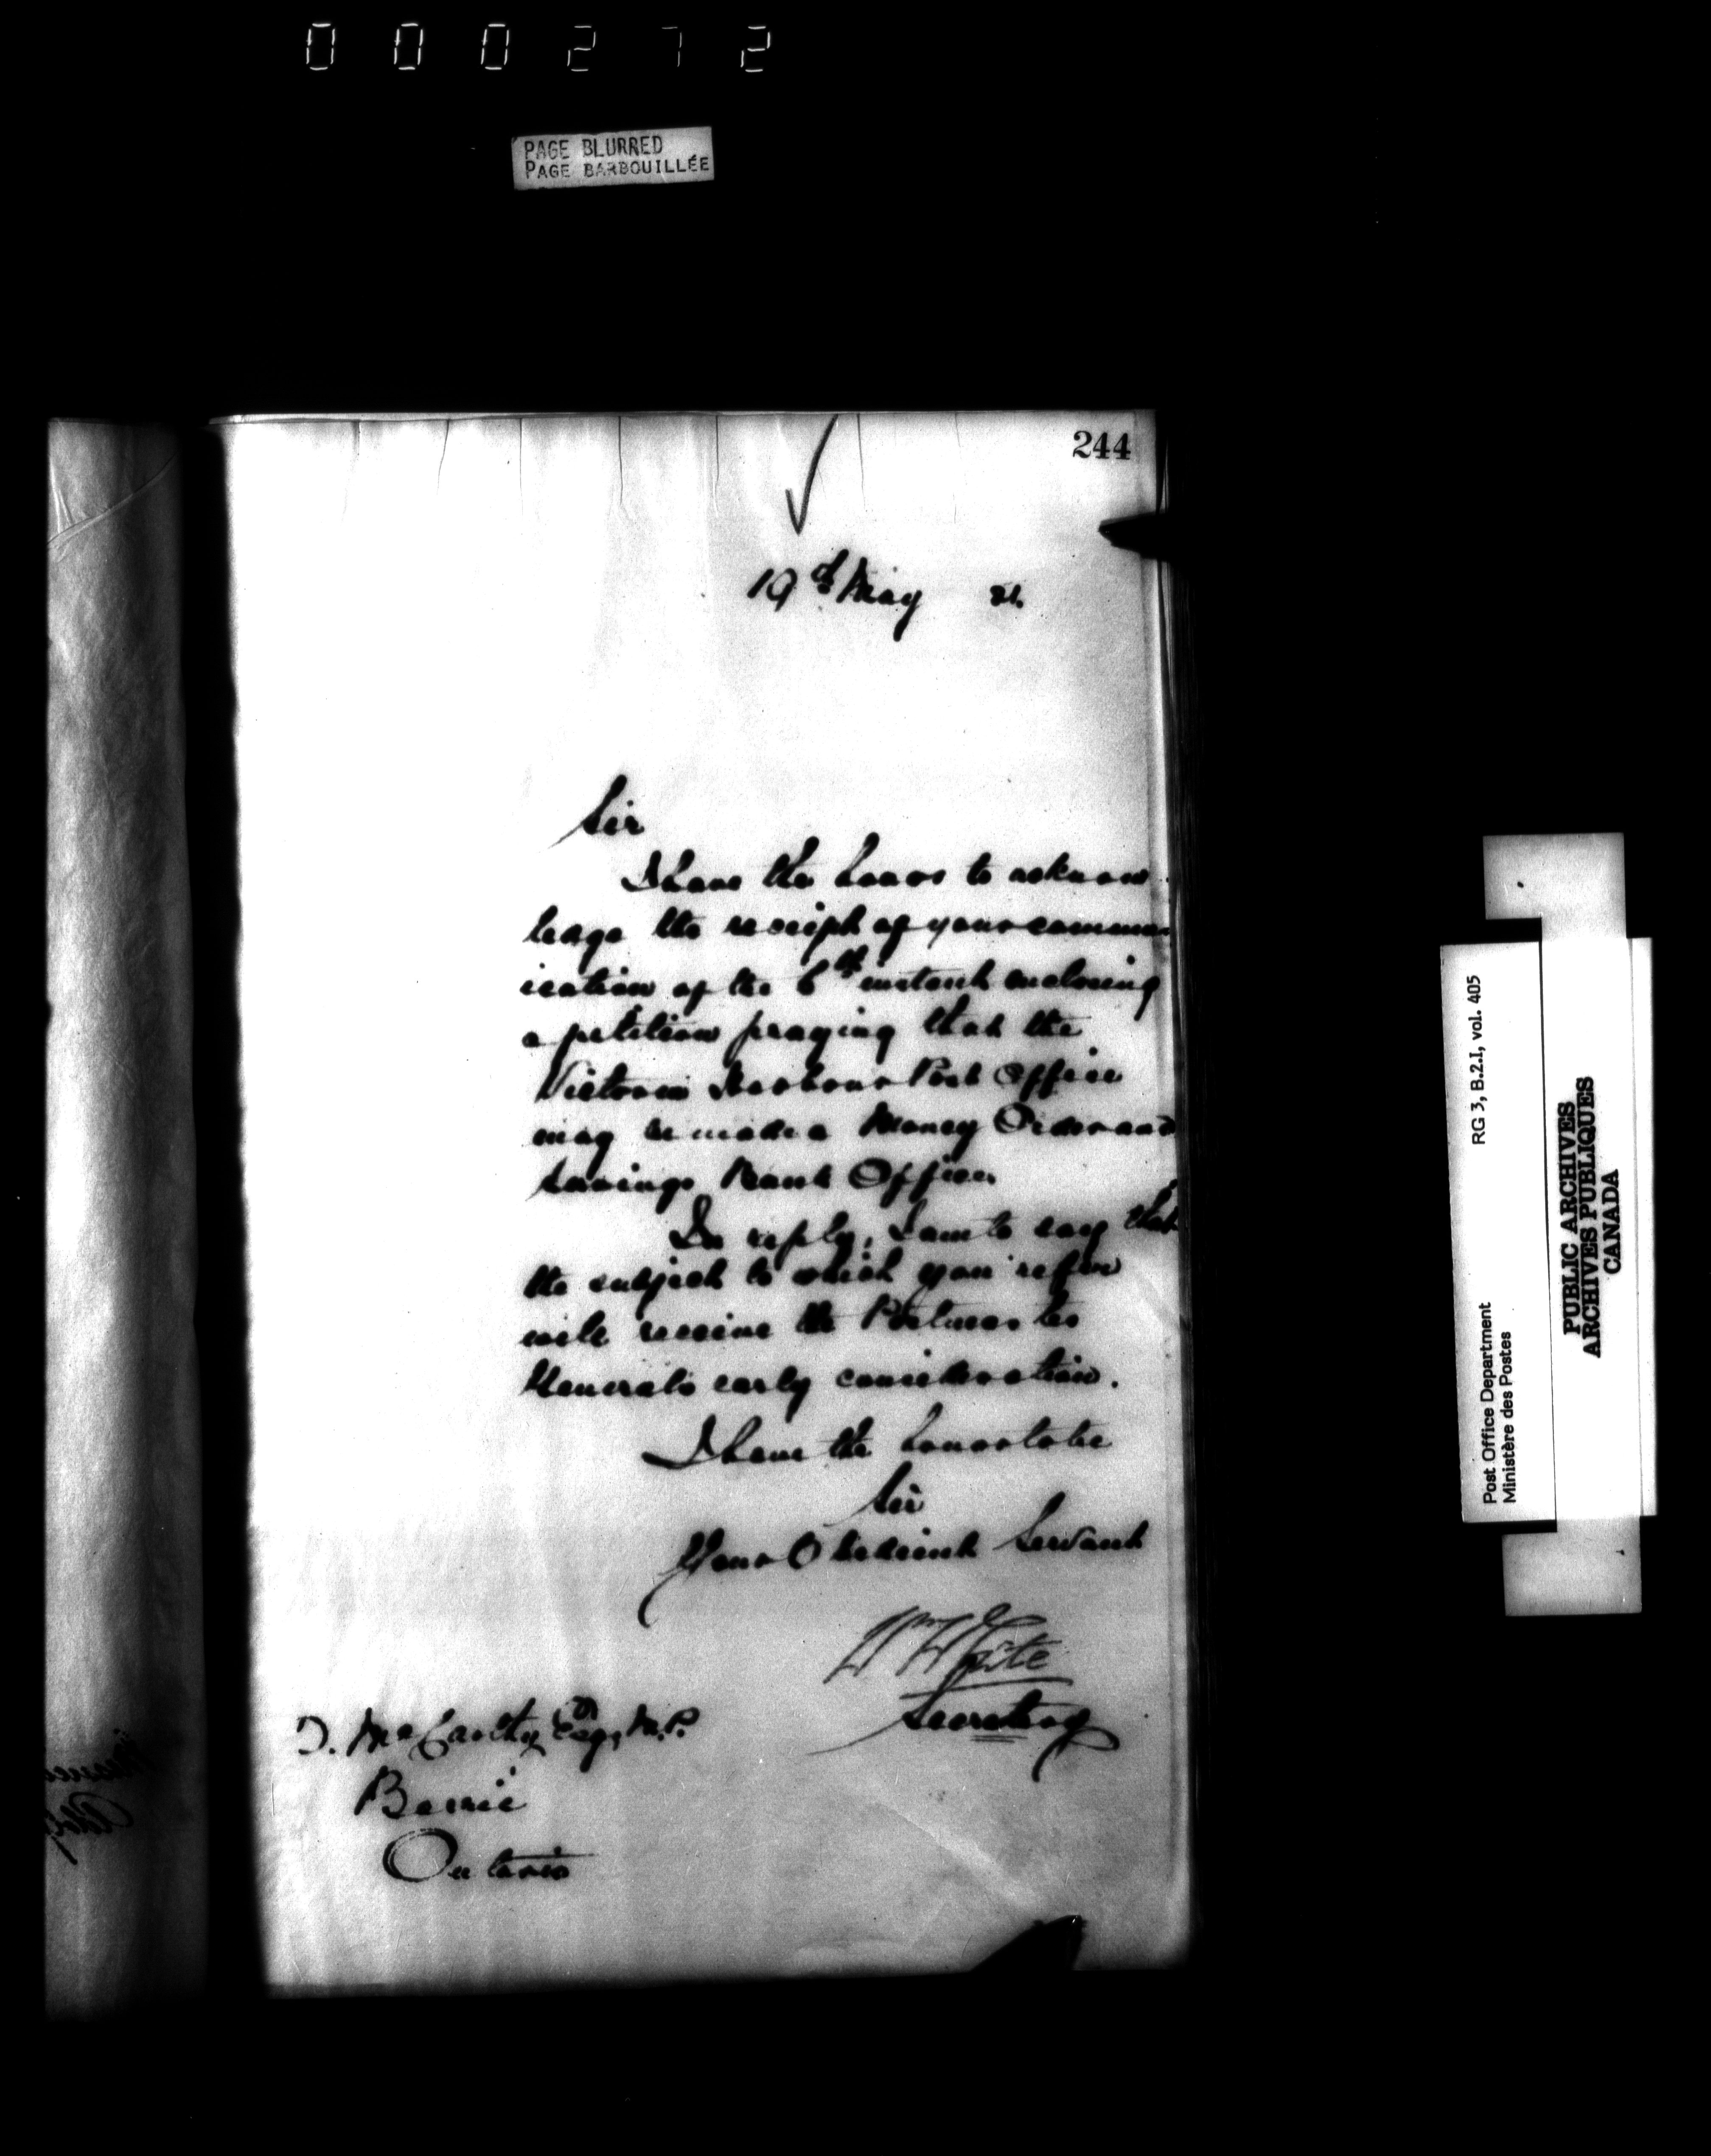 000272
PAGE BLURRED
PAGE BARBOUILLÉE
244
19th May 81.
Sir
I have the honor to acknow
ledge the receipt of your commun
ication of the 6th instant enclosing
a petition praying that the
Victoria Harbour Post Office
may be made a Money Order and
Savings Bank Office.
In reply, I am to say that
the subject to which you refer
will receive the Postmaster
General's early consideration.
I have the honor to be
Sir
Your Obedient Servant
Wm White
Secretary
D. McCarthy Esq, M.P.
Barrie
Ontario
Post Office Department
Ministère des Postes
RG 3, B.2.I, vol. 405
PUBLIC ARCHIVES
ARCHIVES PUBLIQUES
CANADA